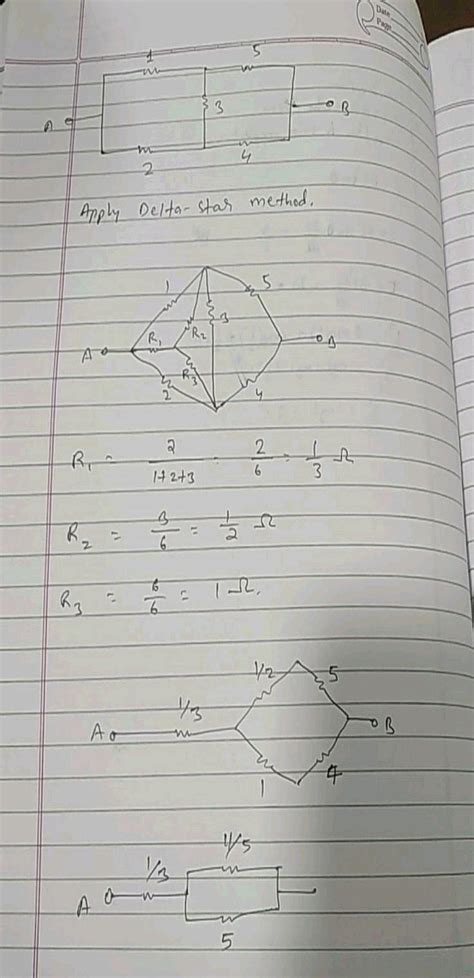 Date
Page
1 5
A 3 B
2 4
Apply Delta-star method.
1 5
A R₁ R₂ 3 B
2 R₃ 4
R₁ = 2/(1+2+3) = 2/6 = 1/3 Ω
R₂ = 3/6 = 1/2 Ω
R₃ = 6/6 = 1 Ω.
1/2 5
A 1/3 B
1 4
11/5
A 1/3
5